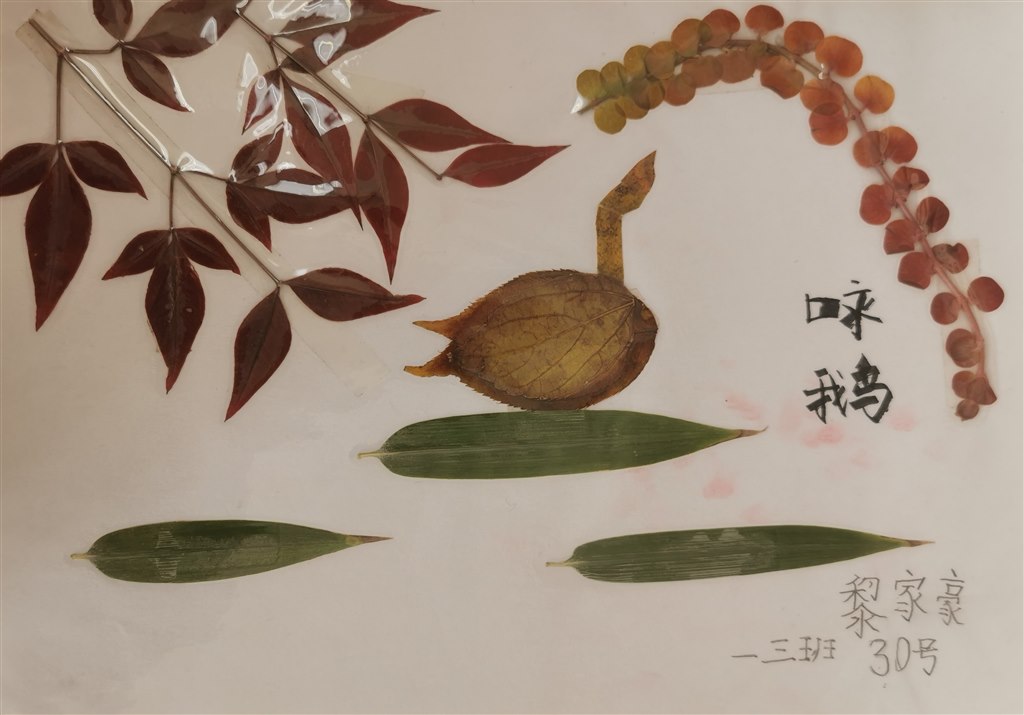 咏
鹅
黎家豪
一三班 30号